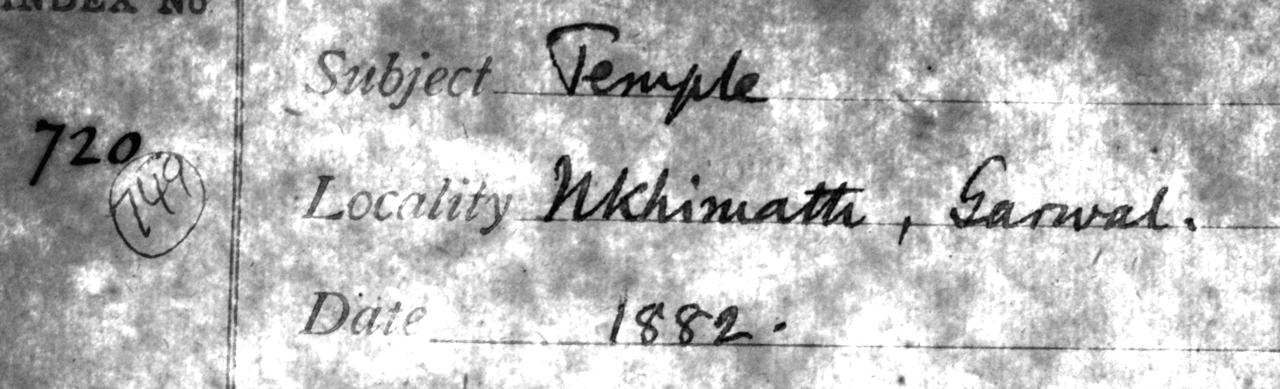 INDEX No
Subject Temple
720
749
Locality Ukhimath, Garwal.
Date 1882.